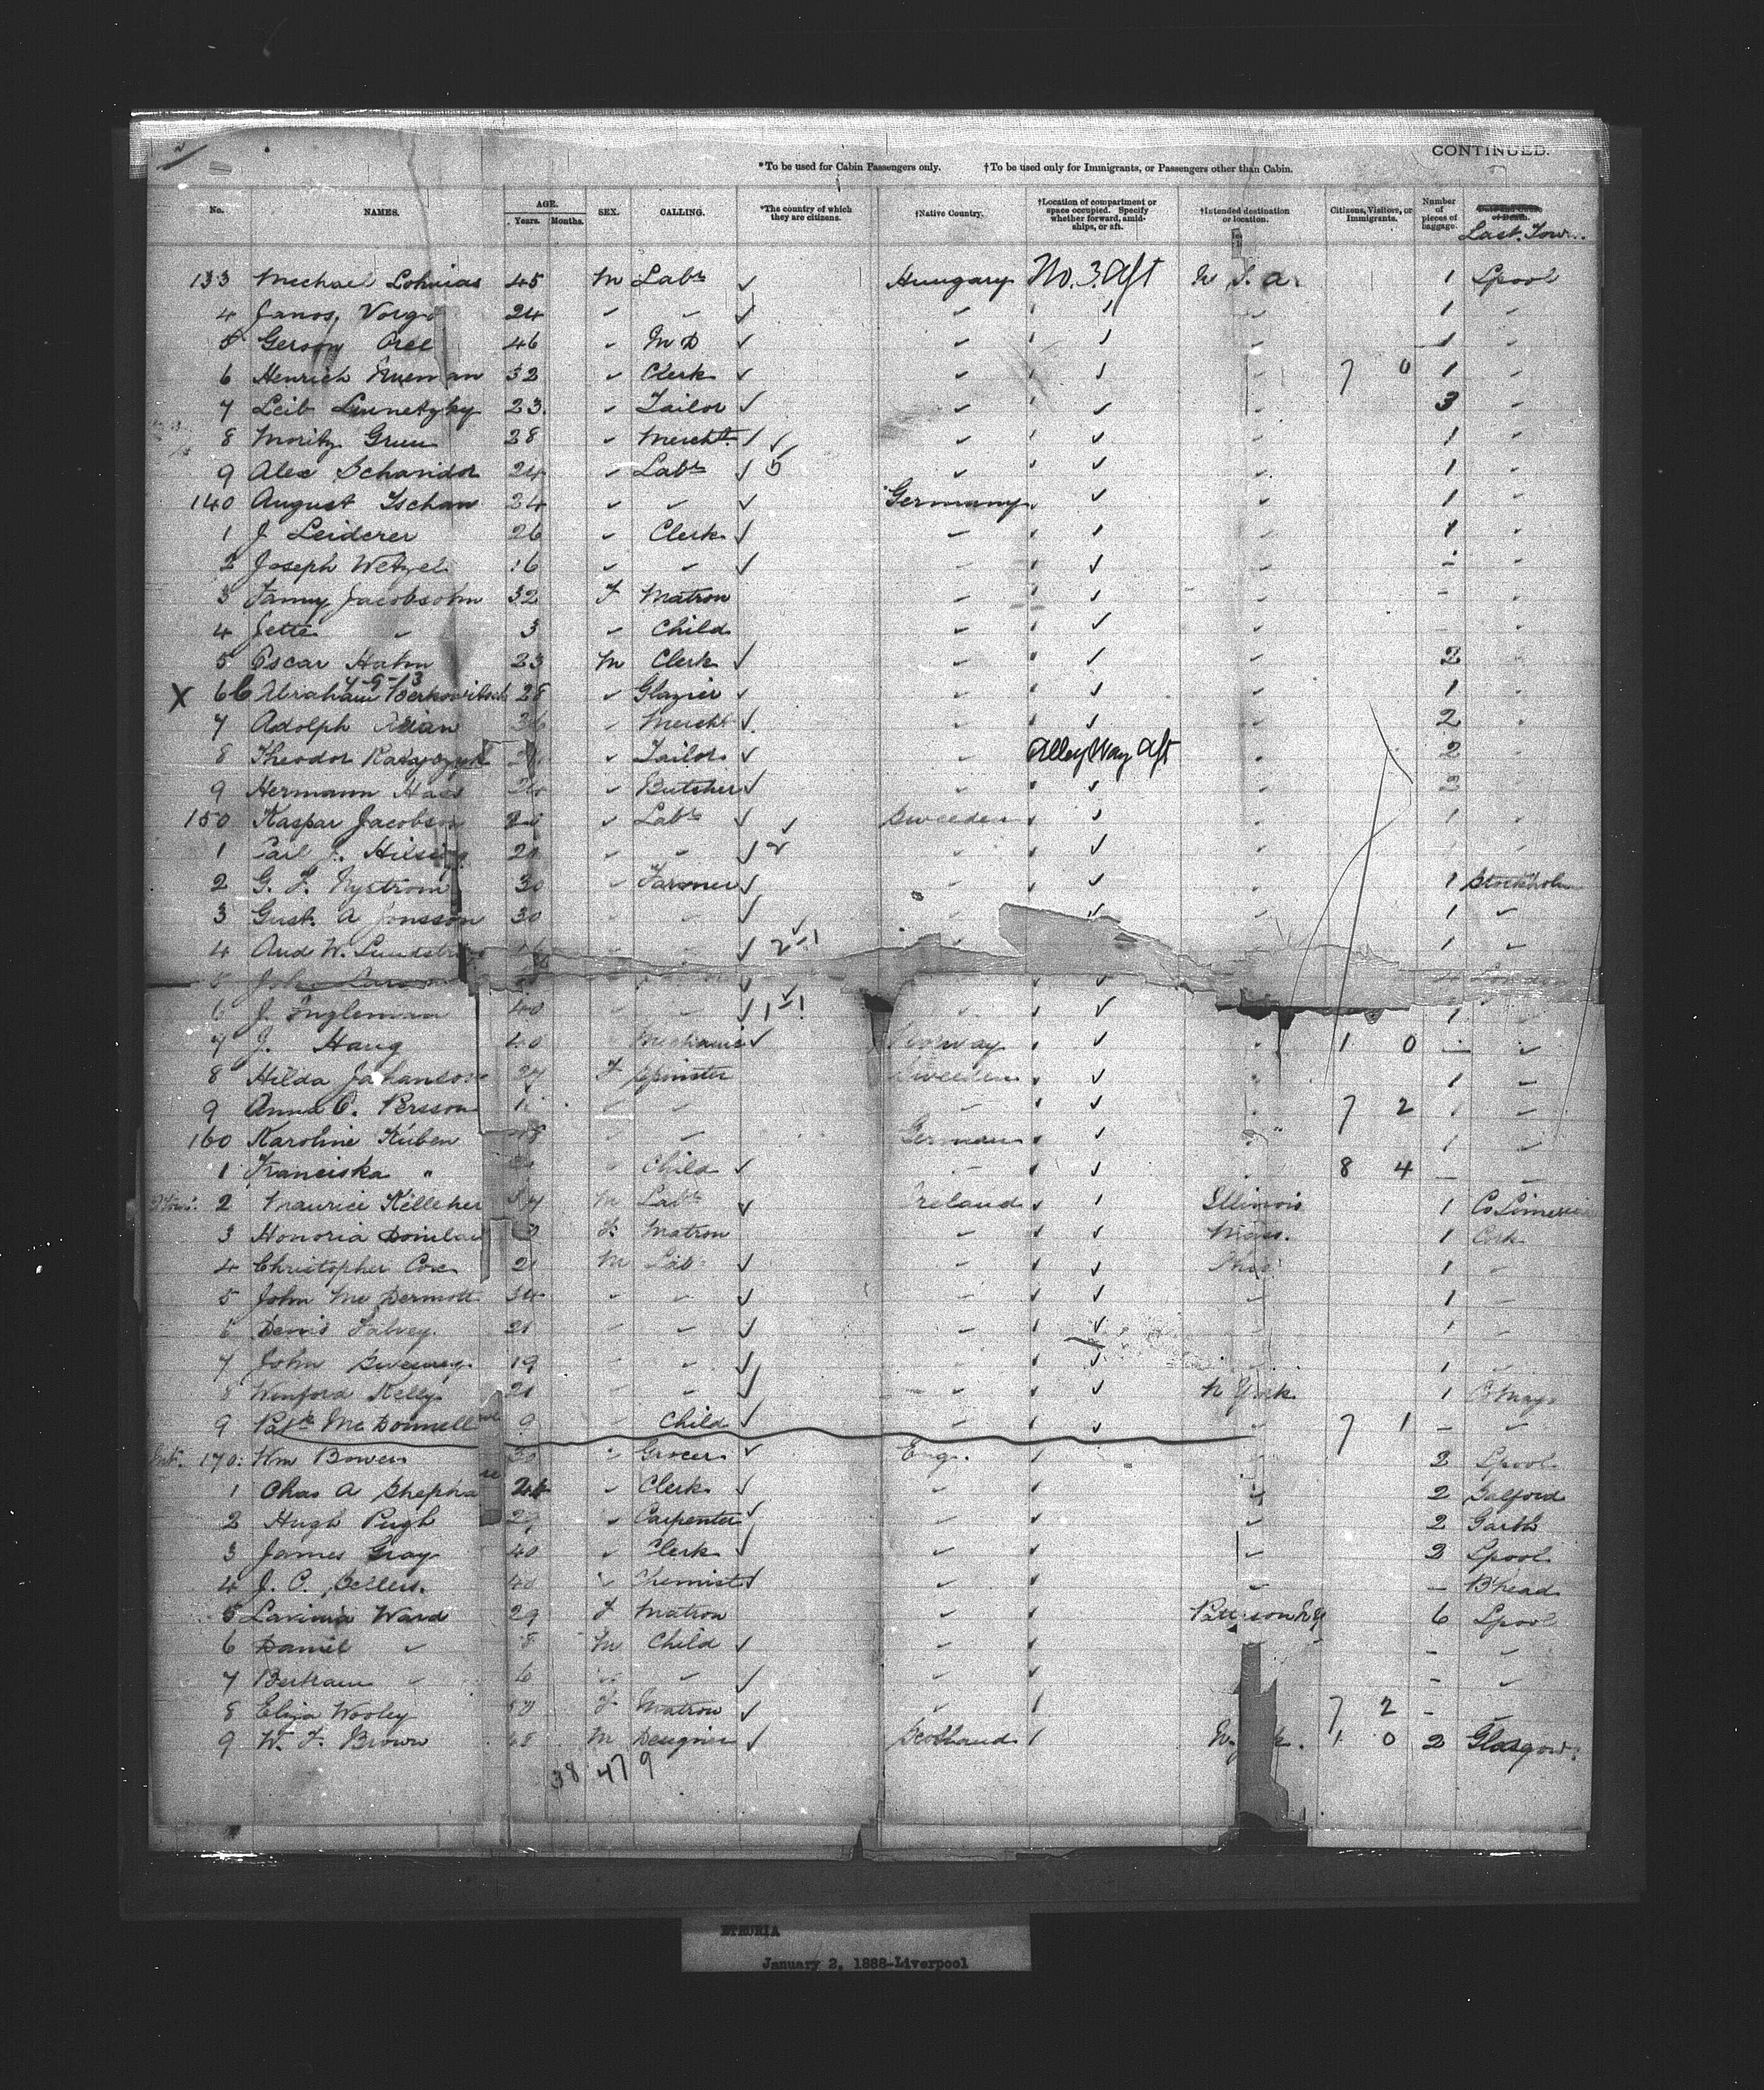 CONTINUED.
*To be used for Cabin Passengers only. †To be used only for Immigrants, or Passengers other than Cabin.
No. NAMES. AGE. Years. Months. SEX. CALLING. *The country of which they are citizens. †Native Country. †Location of compartment or space occupied. Specify whether forward, amidships, or aft. †Intended destination or location. Citizens, Visitors, or Immigrants. Number of pieces of baggage. Last Town.
133 Mechael Lohnias 45 M Labr ✓ Hungary No. 3. aft U. S. a. 1 Lpool
4 Janos, Vorgo 24 " " ✓ " 1 "
5 Gerson 46 " M D ✓ " 1 "
6 Henrich 32 " Clerk ✓ " 7 0 1 "
7 Leib 23 " Tailor ✓ " 3 "
8 Moritz Grun 28 " Mercht ✓ " 1 "
9 Alex Schandor 24 " Labr ✓ 5 " 1 "
140 August Tschan 24 " " ✓ Germany 1 "
1 J Leiderer 26 " Clerk ✓ " 1 "
2 Joseph Wetzel 16 " " ✓ " - "
3 Fanny Jacobsohn 32 F Matron " - "
4 Jette " 3 " Child " - "
5 Oscar Hahn 23 M Clerk ✓ " 2 "
X 6 Abraham Berkowitsch 28 " Glazier ✓ " 1 "
7 Adolph " Mercht ✓ " 2 "
8 Theodor " Tailor ✓ " Alley Way aft " 2 "
9 Hermann Haas " Butcher ✓ " 2 "
150 Kaspar Jacobson " Labr ✓ Sweeden 1 "
1 Carl " " ✓ 2 "
2 G. F. Nystrom 30 " Farmer ✓ " 1 Stockholm
3 Gust. A Jonsson 30 " " ✓ " 1 "
4 And W. Lundstrom " " ✓ 2-1 1 "
5 John
6 J. Ingleman 40 " " ✓ 1-1 " 1 "
7 J. Haug 40 Mechanic ✓ Norway 1 0 - "
8 Hilda Johanson 27 F Spinster Sweeden 1 "
9 Anna C. Persson " " " 7 2 1 "
160 Karoline Kuben " " German 1 "
1 Franciska " " Child ✓ " 8 4 - "
2 Maurice Kelleher M Labr ✓ Ireland Illinois 1 Co Limerick
3 Honoria F Matron " Mass. 1 Cork
4 Christopher Cox 21 M Labr ✓ " 1 "
5 John Mc Dermott 34 " " ✓ " 1 "
6 Denis Falvey 21 " " ✓ " 1 "
7 John Sweeney 19 " " ✓ " 1 "
8 Winford Kelly 21 " " ✓ " N York 1 Co Mayo
9 Patk Mc Donnell 9 " Child ✓ " 7 1 - "
170 Wm Bowen 30 " Grocer ✓ Eng. 2 Lpool
1 Chas A 24 " Clerk ✓ " 2 Salford
2 Hugh Pugh " Carpenter ✓ " 2 Garth
3 James Gray 40 " Clerk ✓ " 2 Lpool
4 J. C. Sellers 40 " Chemist ✓ " - B'head
5 Lavinia Ward 29 F Matron " Patterson 6 Lpool
6 Daniel " 8 M Child ✓ " - "
7 Bertram " 6 " " ✓ " - "
8 Eliza Wooley F Matron ✓ " 7 2 - "
9 W. F. Brown M Designer ✓ Scotland 1 0 2 Glasgow
38 47 9
ETRURIA
January 2, 1888-Liverpool